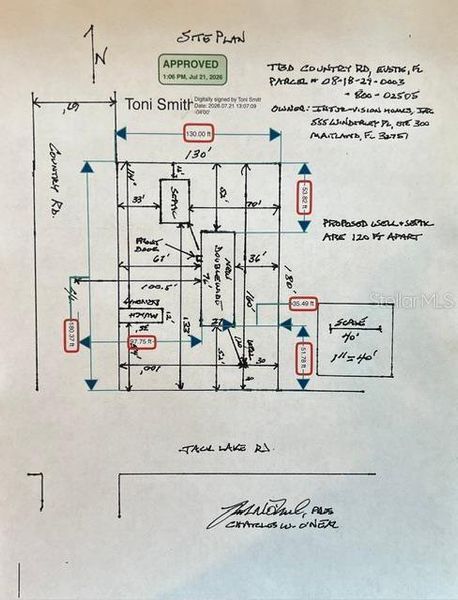 SITE PLAN
N
APPROVED
1:06 PM, Jul 21, 2026
Toni Smith
Digitally signed by Toni Smith
Date: 2026.07.21 13:07:09
-04'00'
TBD COUNTRY RD, EUSTIS, FL
PARCEL # 08-18-27-0003
-800-02505
555 WINDERLEY PL, STE 300
MAITLAND, FL 32751
67'
130.00 ft
130'
COUNTRY RD.
SEPTIC
33'
52'
70'
53.82 ft
PROPOSED WELL & SEPTIC
ARE 120 FT APART
FRONT
DOOR
67'
NEW
DOUBLEWIDE
76'
36'
180'
100.5'
160'
35.49 ft
StellarMLS
SCALE
40'
1"=40'
180.37 ft
12'
133'
97.75 ft
51.78 ft
100'
52'
30
JACK LAKE RD.
CHARLES W. O'NEAL